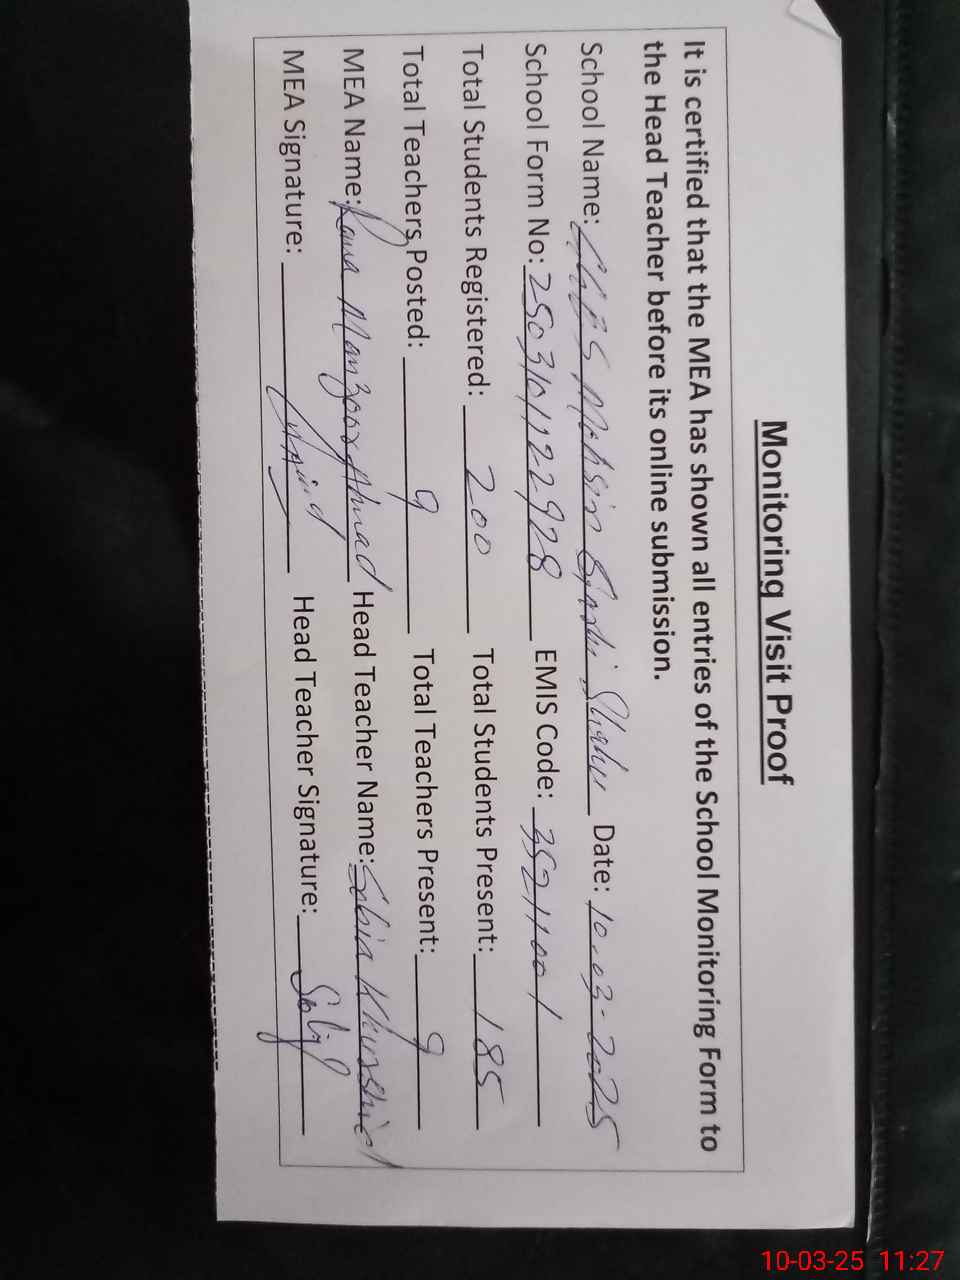 Monitoring Visit Proof
It is certified that the MEA has shown all entries of the School Monitoring Form to
the Head Teacher before its online submission.
School Name: Mohsin Date: 10-03-2025
School Form No: 2503101122928 EMIS Code: 35211001
Total Students Registered: 200 Total Students Present: 185
Total Teachers Posted: 9 Total Teachers Present: 9
MEA Name: Rana Manzoor Ahmad Head Teacher Name: Sobia Khurshid
MEA Signature: Head Teacher Signature:
10-03-25 11:27